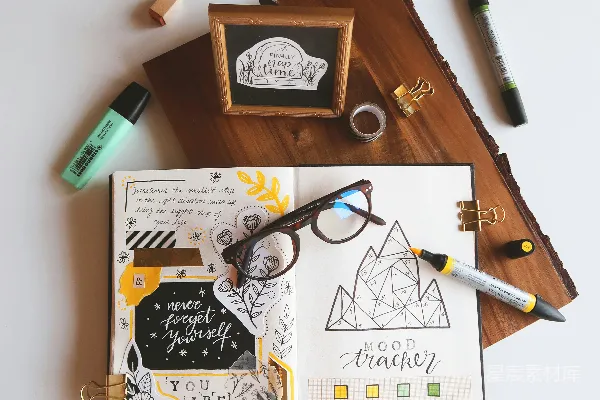 FINALLY
nap
time
Sometimes the smallest step
in the right direction ends up
being the biggest step of
your life
&
never
forget
yourself
YOU
MOOD
tracker